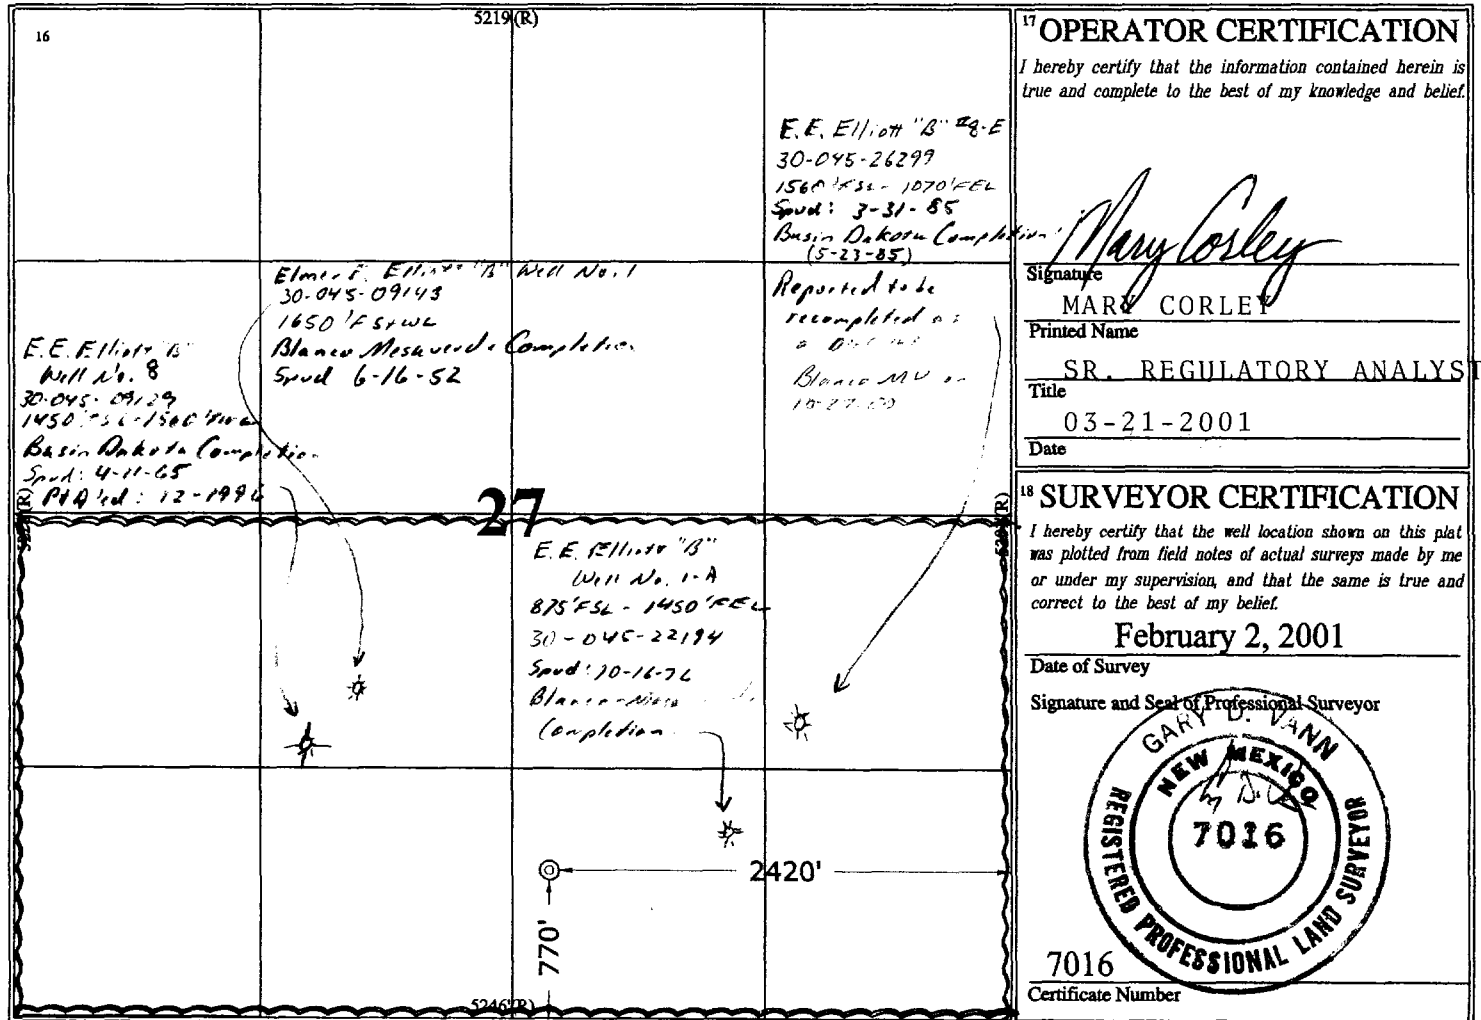 16
5219'(R)
E.E. Elliott "B" #8-E
30-045-26299
1560'FSL - 1070'FEL
Spud: 3-31-85
Basin Dakota Completion
(5-23-85)
Reported to be
recompleted as
a
Blanco MV on
10-27-00
Elmer E. Elliott "B" Well No. 1
30-045-09143
1650'FS+WL
Blanco Mesaverde Completion
Spud 6-16-52
E.E. Elliott "B"
Well No. 8
30-045-09129
1450'FSL-1560'FWL
Basin Dakota Completion
Spud: 4-11-65
P+A'ed: 12-1996
27
E.E. Elliott "B"
Well No. 1-A
875'FSL - 1450'FEL
30-045-22194
Spud: 10-16-76
Blanco-Mesa
Completion
2420'
770'
5246'(R)
17 OPERATOR CERTIFICATION
I hereby certify that the information contained herein is
true and complete to the best of my knowledge and belief.
Mary Corley
Signature
MARY CORLEY
Printed Name
SR. REGULATORY ANALYST
Title
03-21-2001
Date
18 SURVEYOR CERTIFICATION
I hereby certify that the well location shown on this plat
was plotted from field notes of actual surveys made by me
or under my supervision, and that the same is true and
correct to the best of my belief.
February 2, 2001
Date of Survey
Signature and Seal of Professional Surveyor
GARY D. VANN
NEW MEXICO
7016
REGISTERED PROFESSIONAL LAND SURVEYOR
7016
Certificate Number